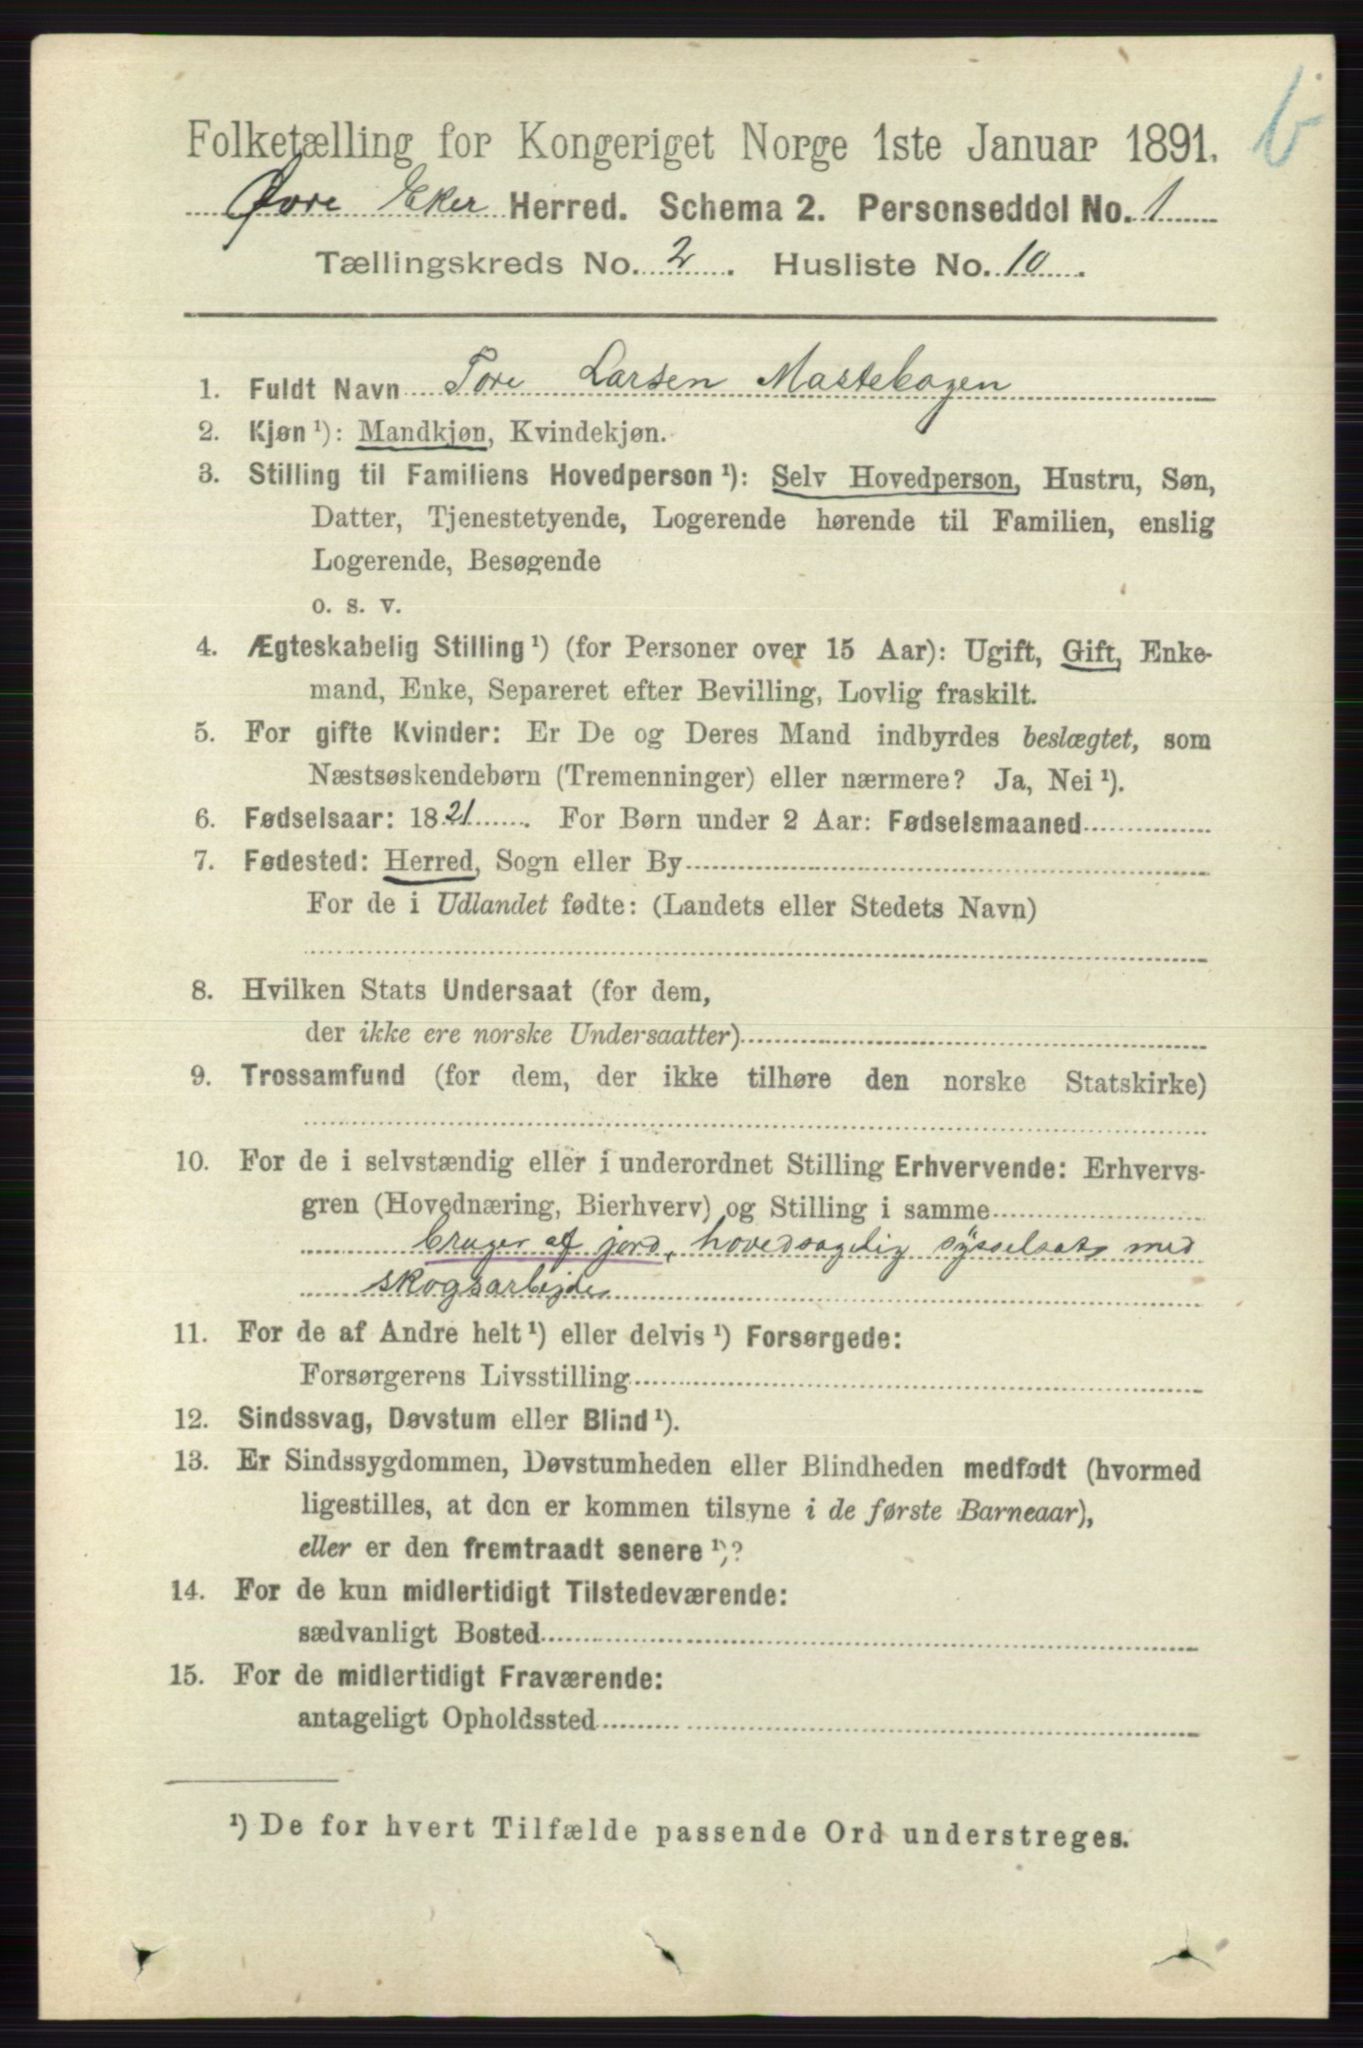 Folketælling for Kongeriget Norge 1ste Januar 1891.
Øvre Eker Herred. Schema 2. Personseddel No. 1
Tællingskreds No. 2. Husliste No. 10.
1. Fuldt Navn Tore Larsen Mastebogen
2. Kjøn¹): Mandkjøn, Kvindekjøn.
3. Stilling til Familiens Hovedperson¹): Selv Hovedperson, Hustru, Søn,
Datter, Tjenestetyende, Logerende hørende til Familien, enslig
Logerende, Besøgende
o. s. v.
4. Ægteskabelig Stilling¹) (for Personer over 15 Aar): Ugift, Gift, Enke-
mand, Enke, Separeret efter Bevilling, Lovlig fraskilt.
5. For gifte Kvinder: Er De og Deres Mand indbyrdes beslægtet, som
Næstsøskendebørn (Tremenninger) eller nærmere? Ja, Nei¹).
6. Fødselsaar: 1821. For Børn under 2 Aar: Fødselsmaaned
7. Fødested: Herred, Sogn eller By
For de i Udlandet fødte: (Landets eller Stedets Navn)
8. Hvilken Stats Undersaat (for dem,
der ikke ere norske Undersaatter)
9. Trossamfund (for dem, der ikke tilhøre den norske Statskirke)
10. For de i selvstændig eller i underordnet Stilling Erhvervende: Erhvervs-
gren (Hovednæring, Bierhverv) og Stilling i samme
bruger af jord, hovedsagelig sysselsat med
skogsarbejde
11. For de af Andre helt¹) eller delvis¹) Forsørgede:
Forsørgerens Livsstilling
12. Sindssvag, Døvstum eller Blind¹).
13. Er Sindssygdommen, Døvstumheden eller Blindheden medfødt (hvormed
ligestilles, at den er kommen tilsyne i de første Barneaar),
eller er den fremtraadt senere¹)?
14. For de kun midlertidigt Tilstedeværende:
sædvanligt Bosted
15. For de midlertidigt Fraværende:
antageligt Opholdssted
¹) De for hvert Tilfælde passende Ord understreges.